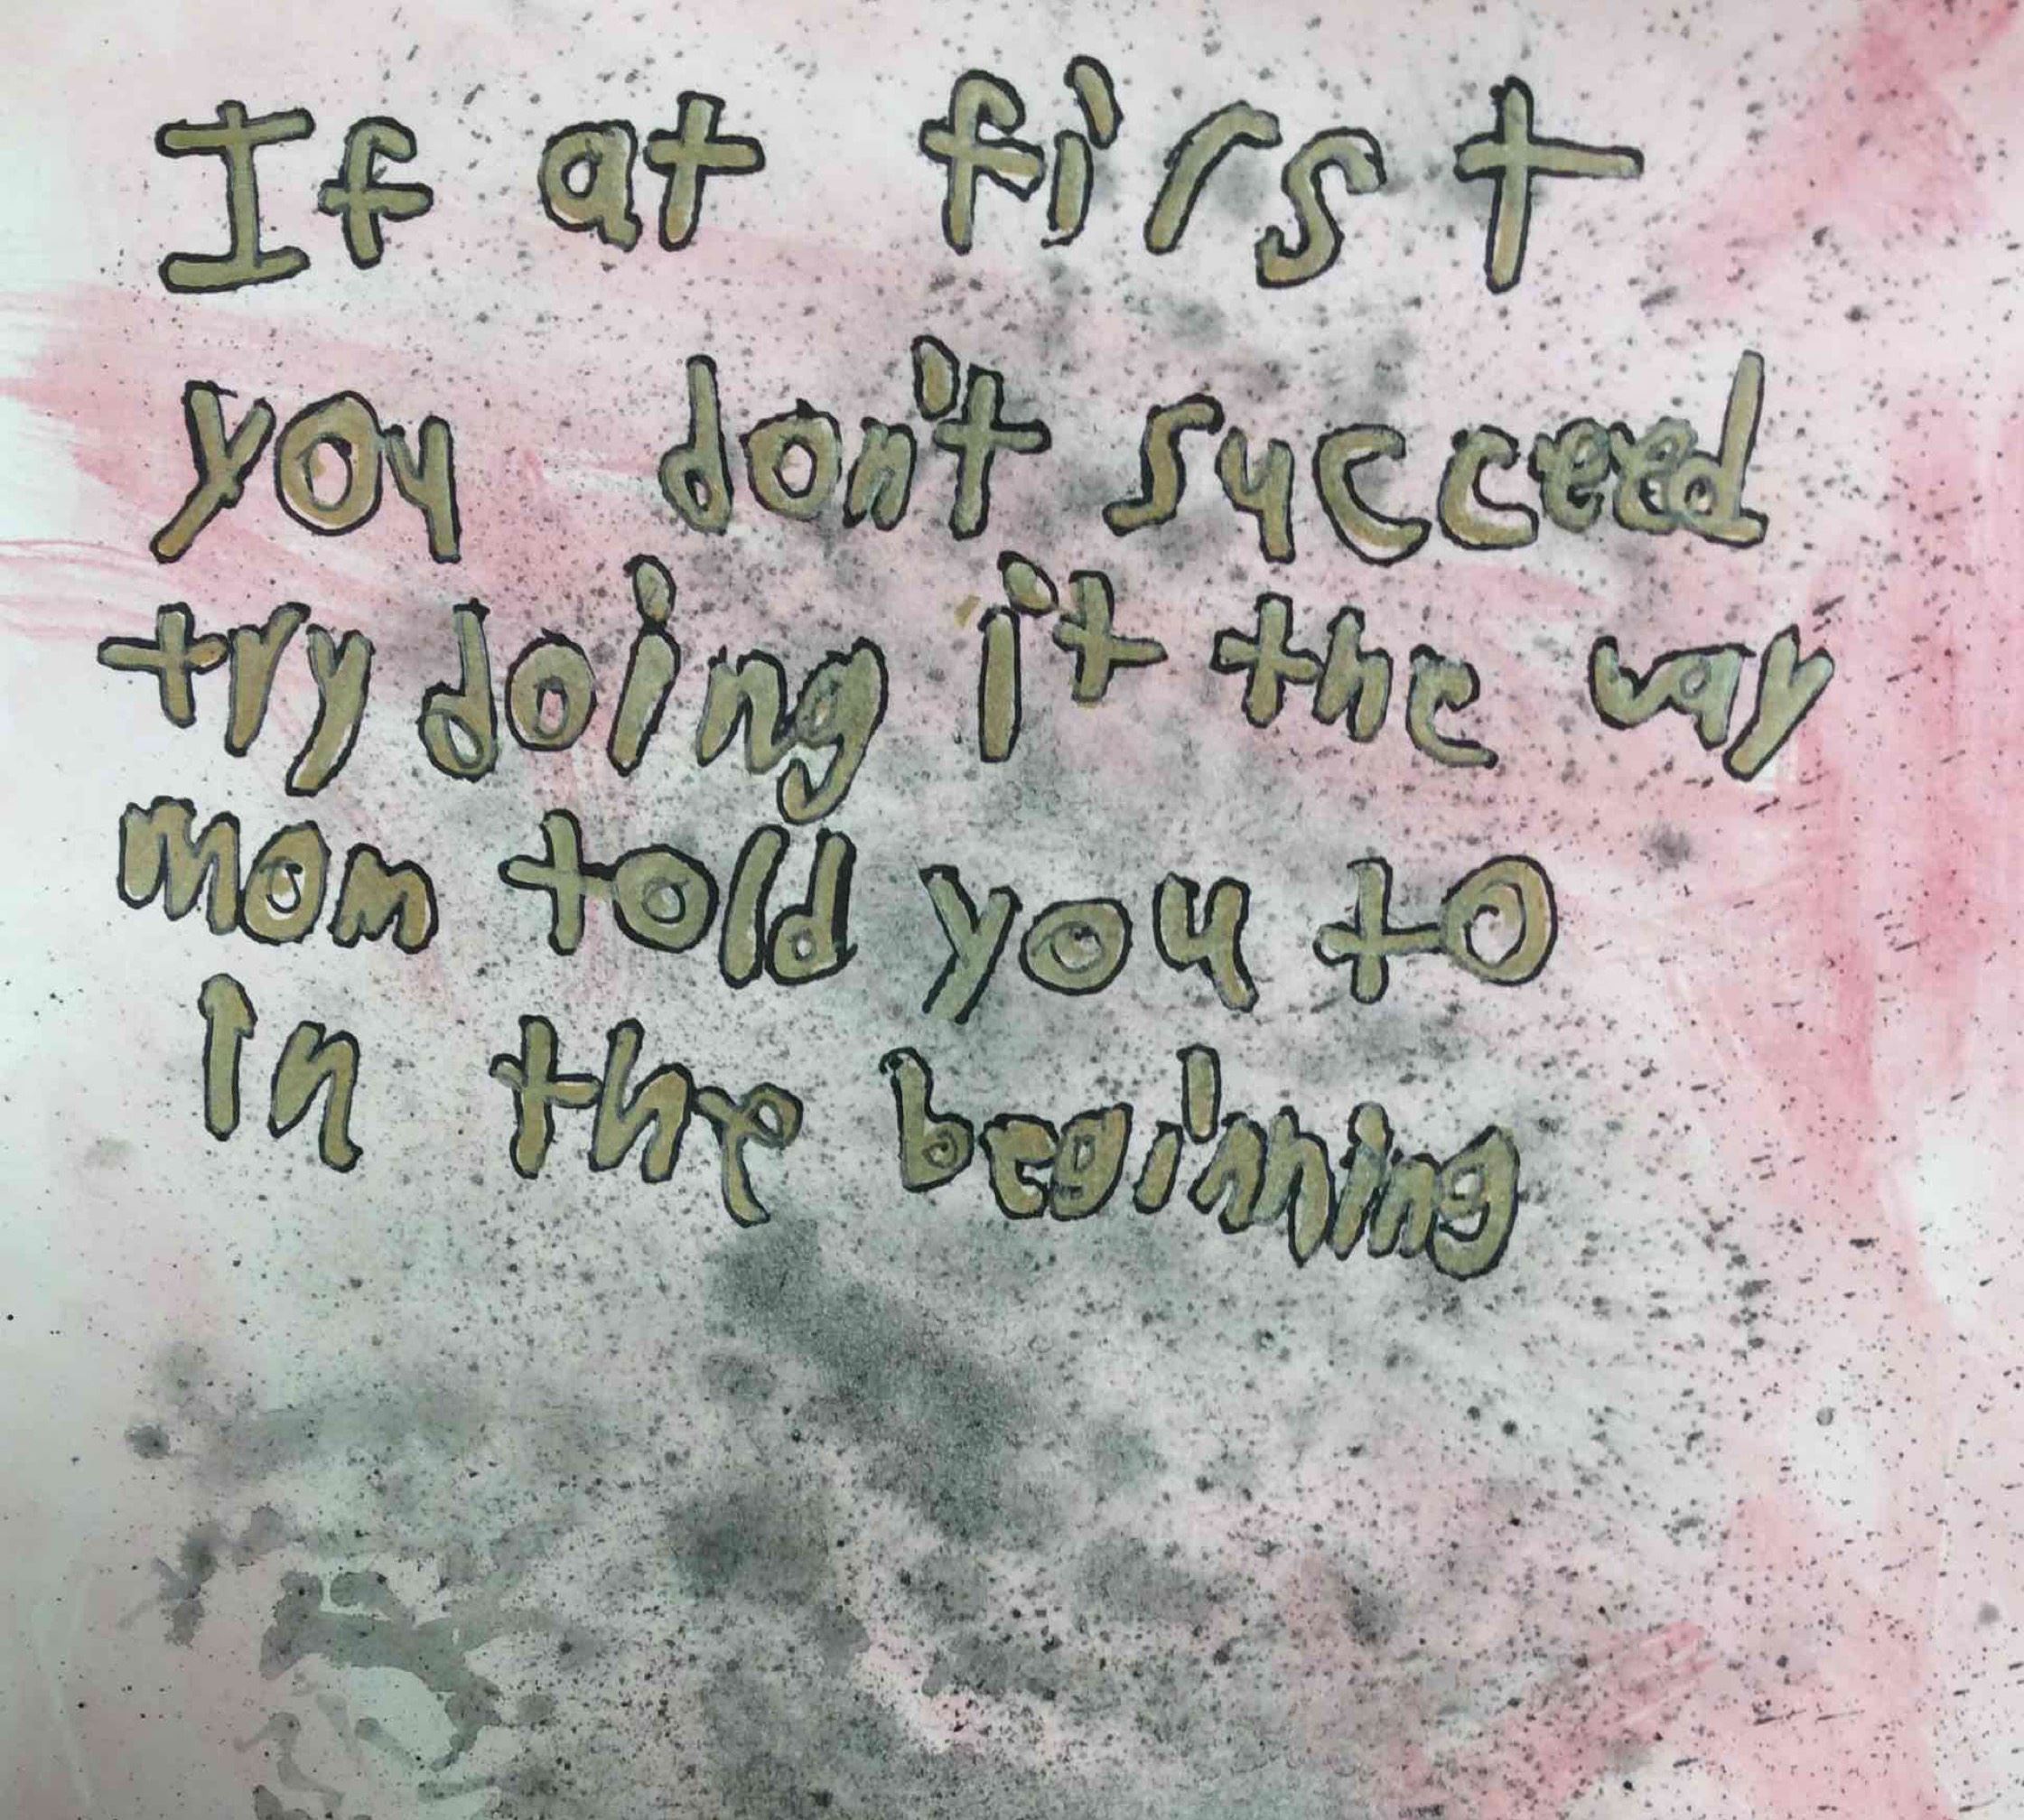 If at first
you don't succeed
try doing it the way
mom told you to
in the beginning